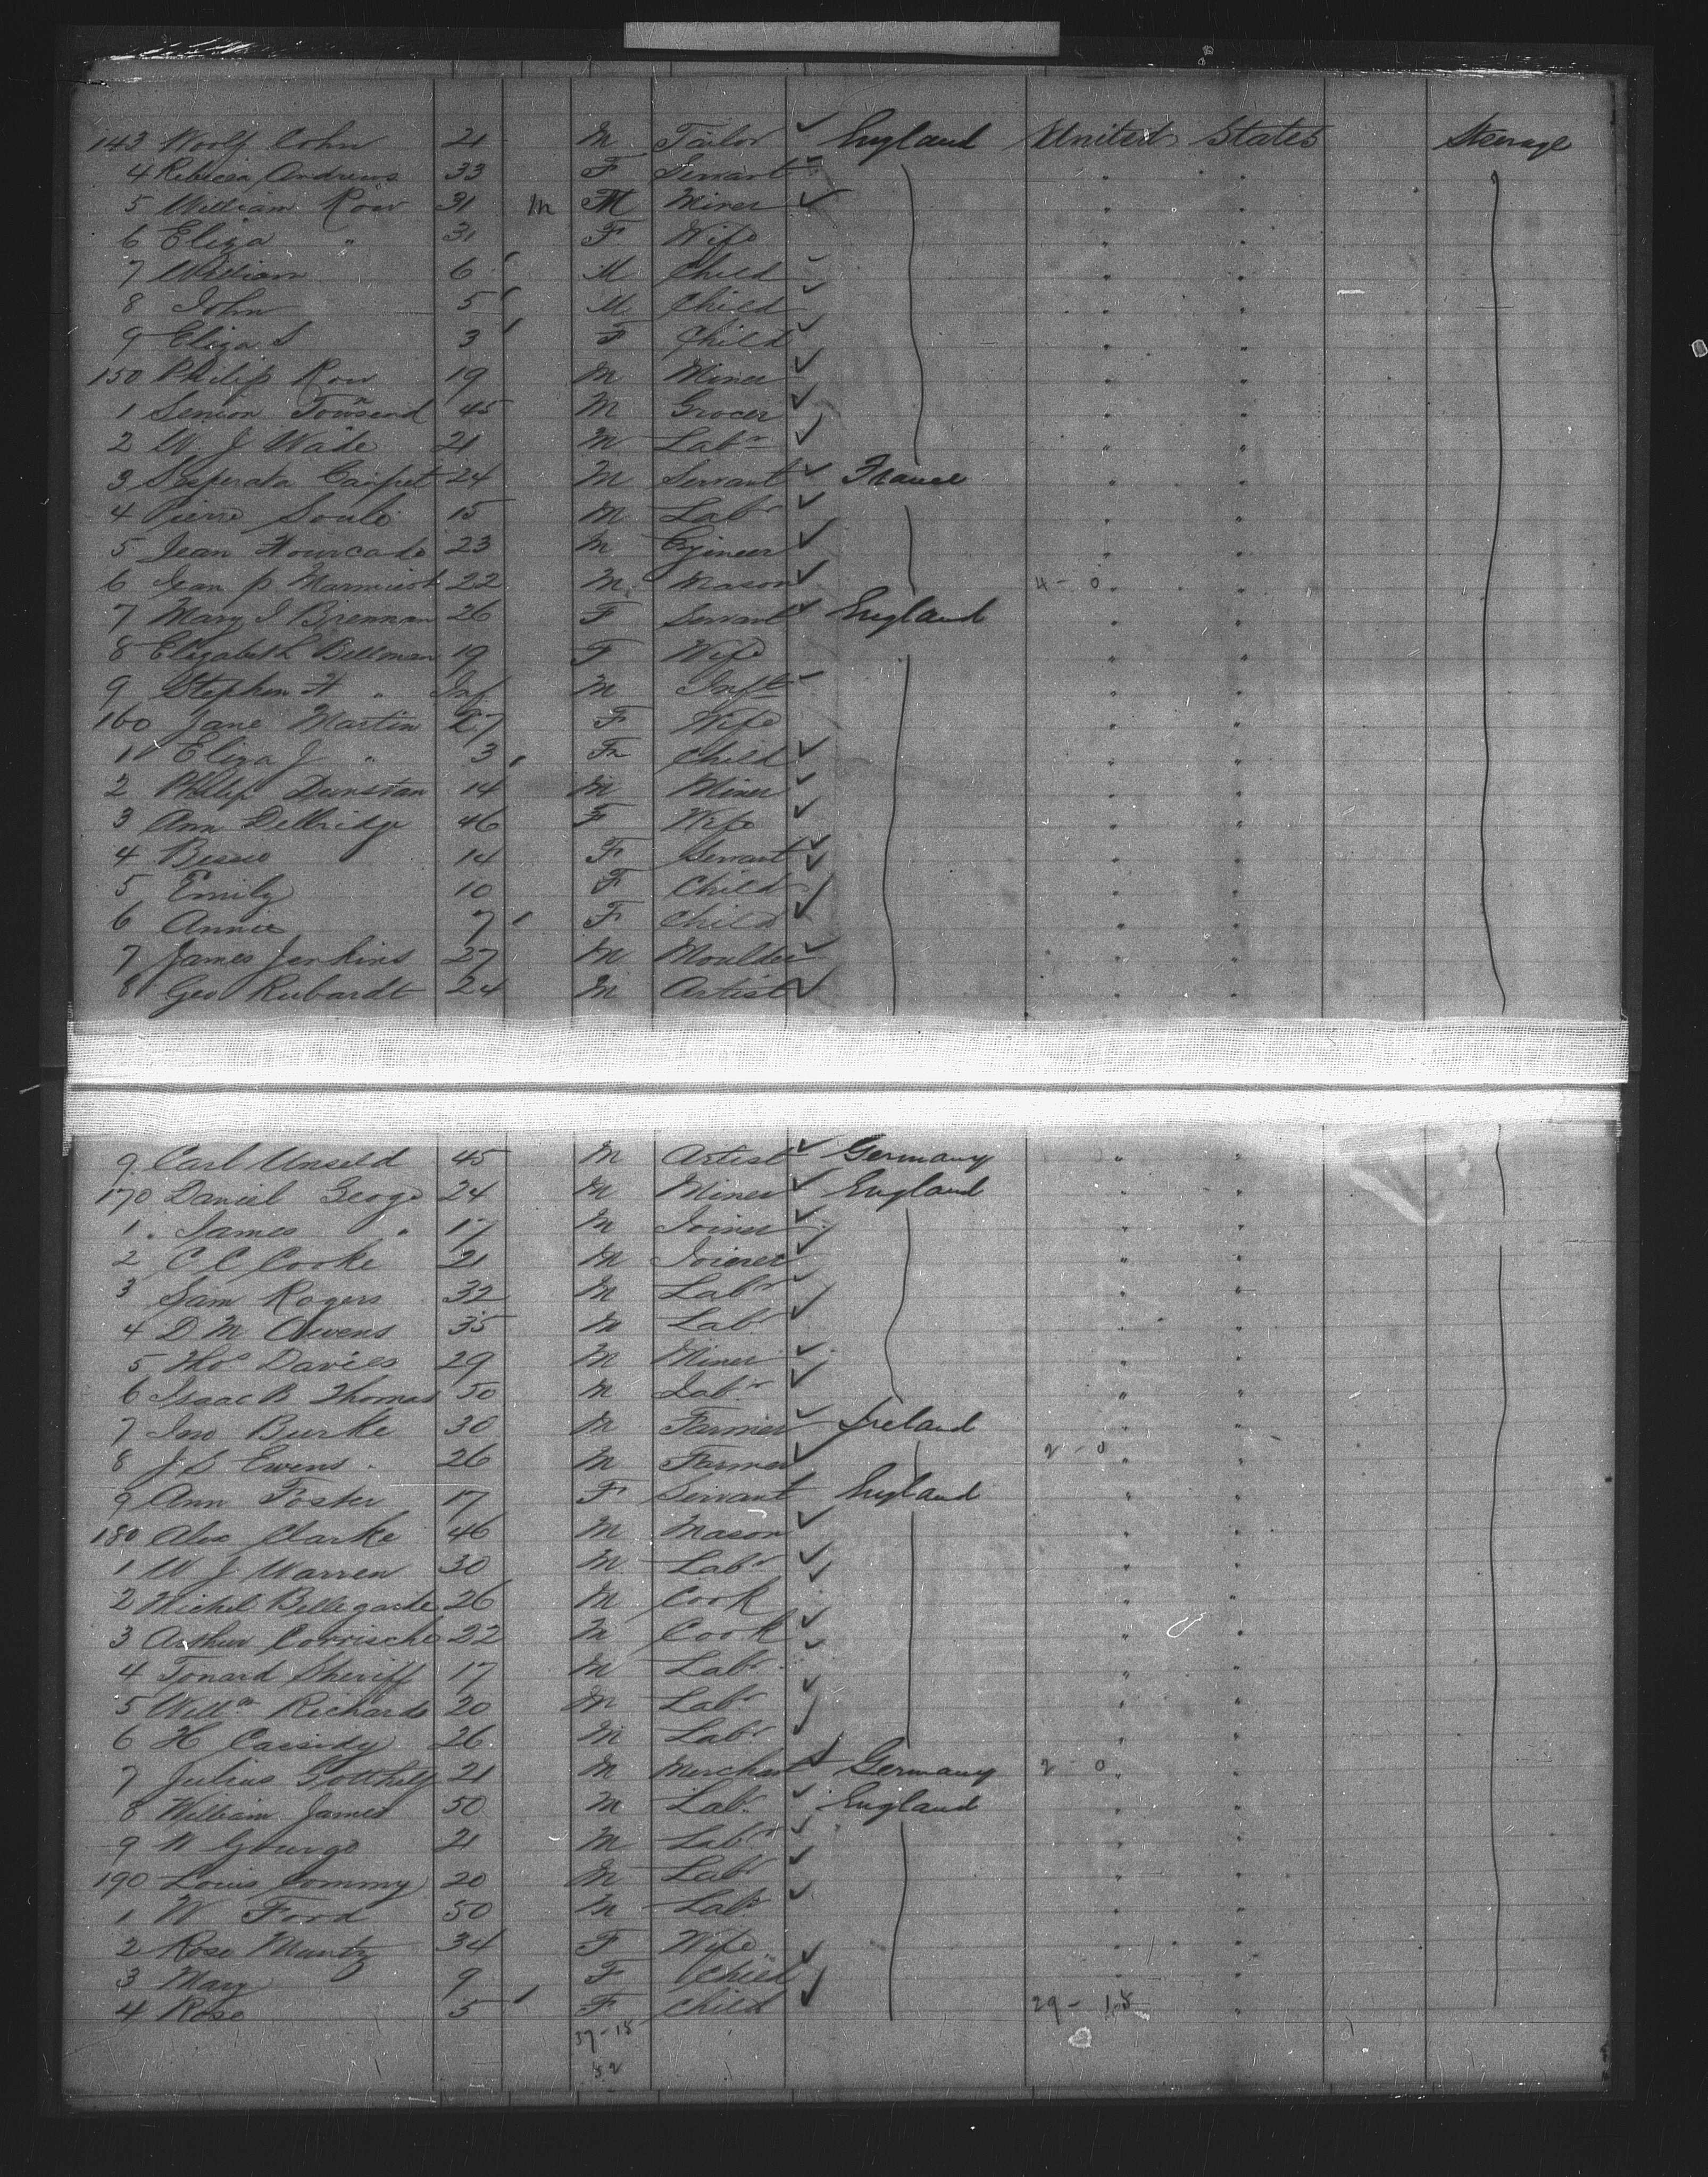 143 Woolf Cohn 21 M Tailor England United States Steerage
4 Rebecca Andrews 33 F Servant " "
5 William Row 31 m M Miner " "
6 Eliza " 31 F Wife " "
7 William 6 M Child " "
8 John 5 M Child " "
9 Eliza S 3 F Child " "
150 Philip Row 19 M Miner " "
1 Townsend 45 M Grocer " "
2 W. J. Wade 21 M Labr " "
3 24 M Servant France " "
4 Pierre Soulé 15 M Labr " "
5 Jean Hourcade 23 M Engineer " "
6 Jean p 22 M Mason 4-0 " "
7 Mary I Brennan 26 F Servant England " "
8 Elizabeth Bellman 19 F Wife " "
9 Stephen H " Inf M Inft " "
160 Jane Martin 27 F Wife " "
1 Eliza J " 3 F Child " "
2 Philip Dunstan 14 M Miner " "
3 Ann Delbridge 46 F Wife " "
4 Bessie 14 F Servant " "
5 Emily 10 F Child " "
6 Annie 7 F Child " "
7 James Jenkins 27 M Moulder " "
8 Geo Rubardt 24 M Artist " "
9 Carl Unseld 45 M Artist Germany " "
170 Daniel George 24 M Miner England " "
1 James " 17 M Joiner " "
2 C C Cooke 21 M Joiner " "
3 Sam Rogers 32 M Labr " "
4 D M Owens 35 M Labr " "
5 Thos Davies 29 M Miner " "
6 Isaac B Thomas 50 M Labr " "
7 Jno Burke 30 M Farmer Ireland " "
8 J S Ewens 26 M Farmer 2-0 " "
9 Ann Foster 17 F Servant England " "
180 Alex Clarke 46 M Mason " "
1 W J Warren 30 M Labr " "
2 Michel Bellegarde 26 M Cook " "
3 Arthur 22 M Cook " "
4 Sheriff 17 M Labr " "
5 Willm Richards 20 M Labr " "
6 H Cassidy 26 M Labr " "
7 Julius Gotthelf 21 M Merchant Germany 2-0 " "
8 William James 50 M Labr England " "
9 W 21 M Labr " "
190 Louis 20 M Labr " "
1 W Ford 50 M Labr " "
2 Rose Muntz 34 F Wife " "
3 Mary 9 F Child " "
4 Rose 5 F Child 29-18 "
37-15
52